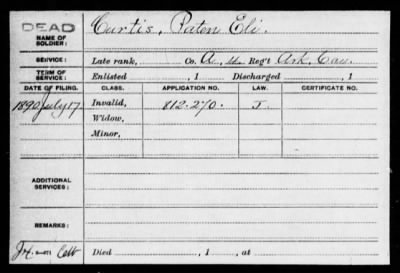 DEAD
NAME OF SOLDIER:
Curtis, Paten Eli.
SERVICE:
Late rank, Co. A, 4 Reg't Ark. Cav.
TERM OF SERVICE:
Enlisted , 1 Discharged , 1
DATE OF FILING. CLASS. APPLICATION NO. LAW. CERTIFICATE NO.
1890 July 17 Invalid, 812.270. J.
Widow,
Minor,
ADDITIONAL SERVICES:
REMARKS:
Died , 1 , at